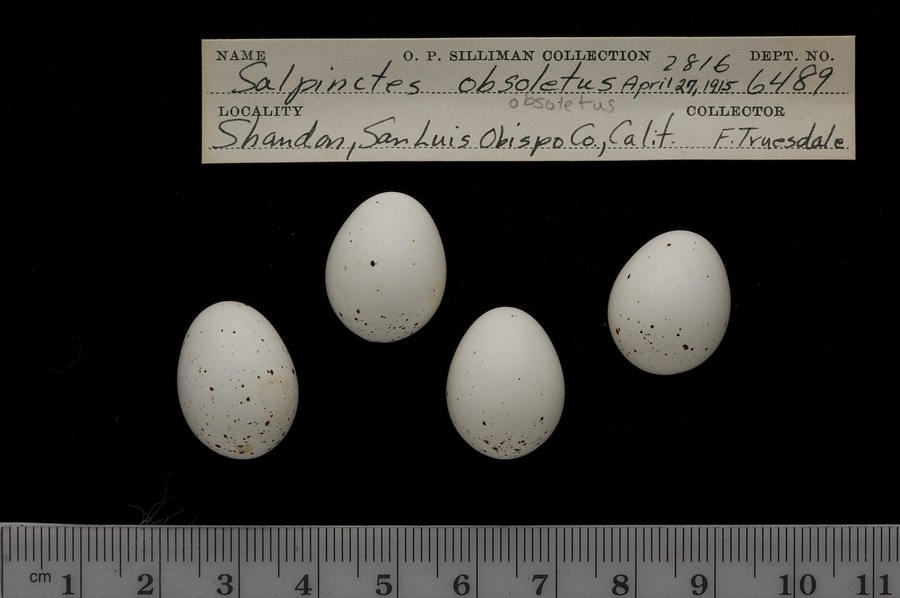 NAME O. P. SILLIMAN COLLECTION 2816 DEPT. NO.
Salpinctes obsoletus April 27, 1915 6489
obsoletus
LOCALITY COLLECTOR
Shandon, San Luis Obispo Co., Calif. F. Truesdale
cm 1 2 3 4 5 6 7 8 9 10 11